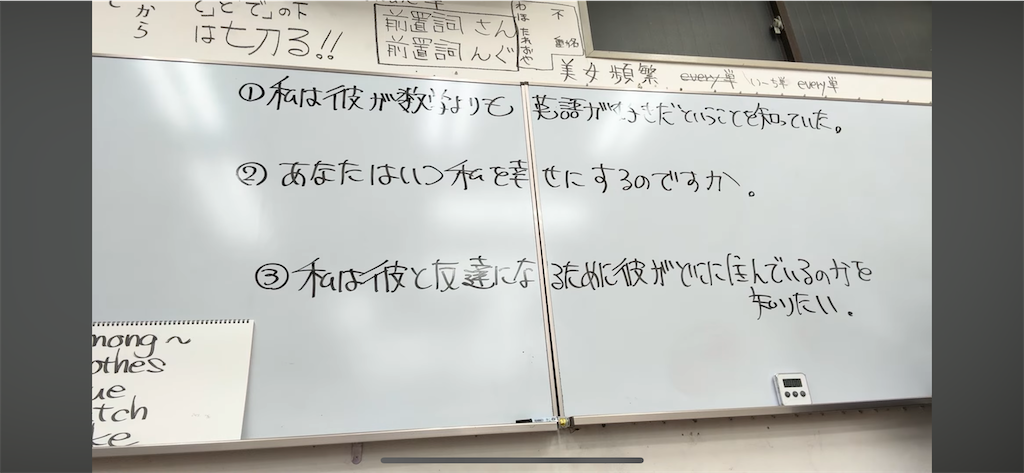 から
「と」と「で」の下
は七刀る!!
前置詞 さん
前置詞 んぐ
不
美女頻繁 every単 いーち単 every単
①私は彼が数学よりも英語が好きだということを知っていた。
②あなたはいつ私を幸せにするのですか。
③私は彼と友達になるために彼がどこに住んでいるのかを
知りたい。
mong～
othes
ue
tch
ke